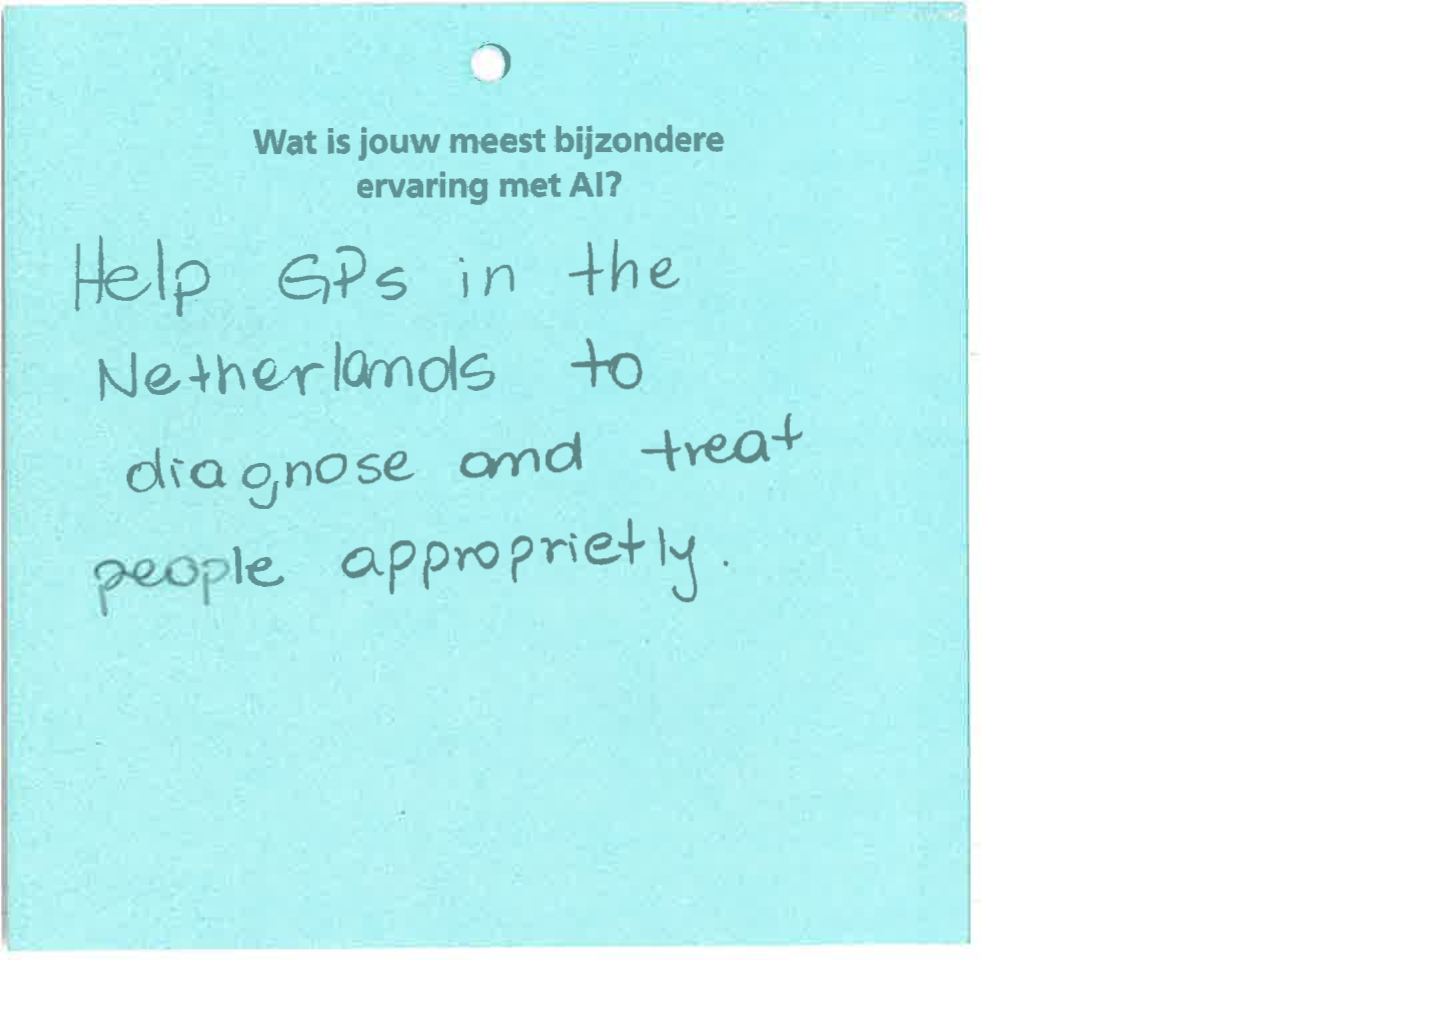 Wat is jouw meest bijzondere
ervaring met AI?
Help GPs in the
Netherlands to
diagnose and treat
people approprietly.